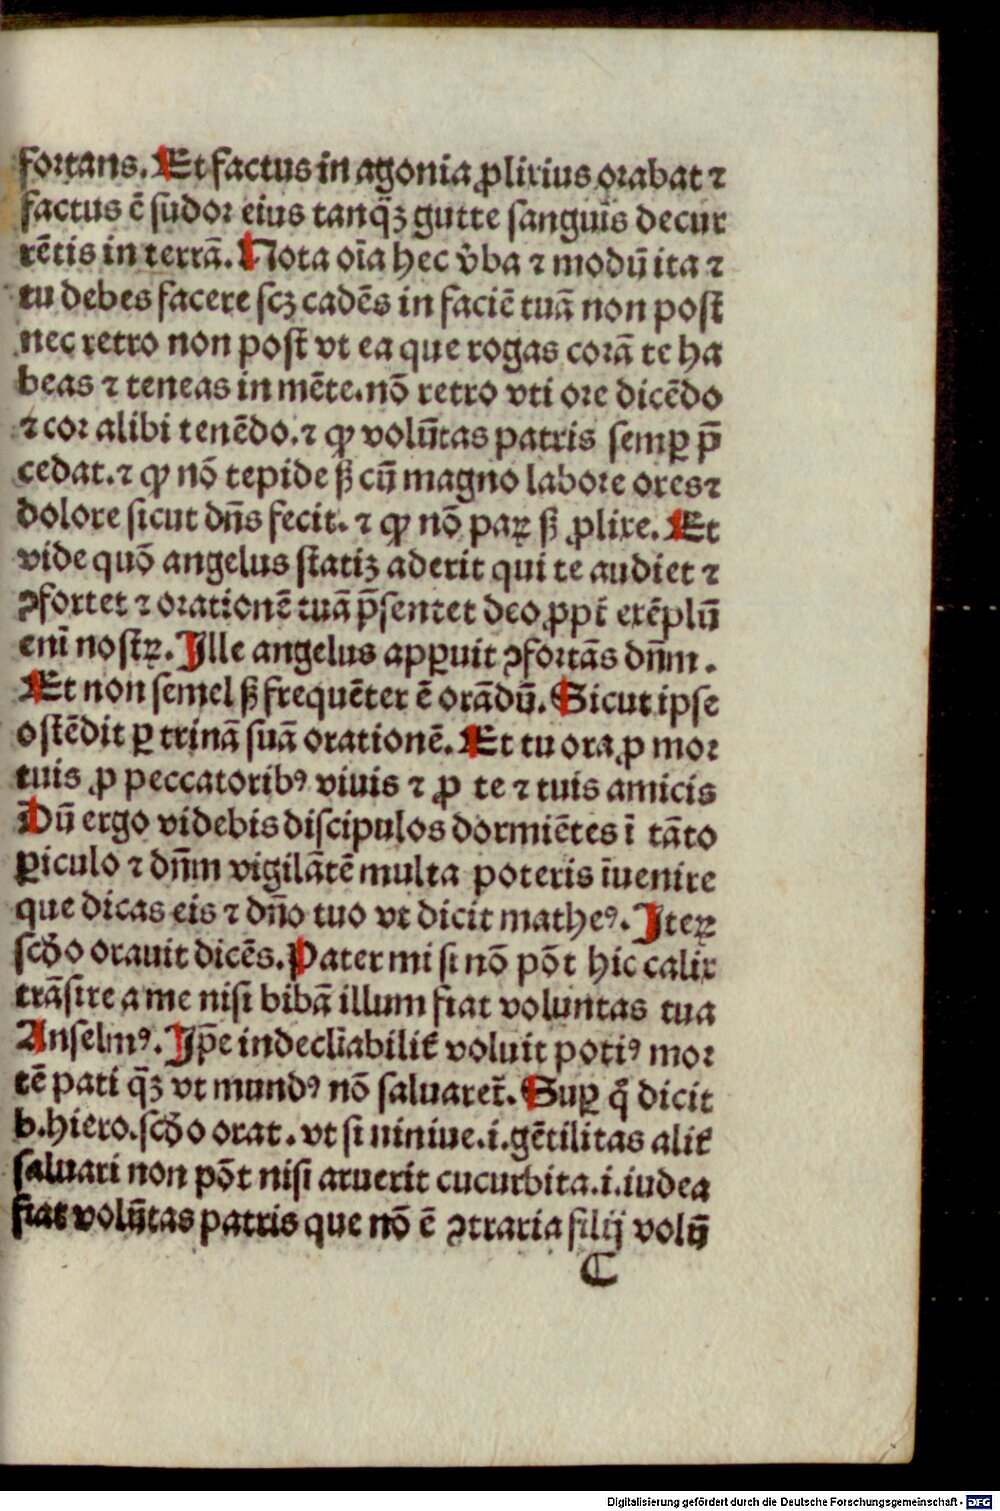 fortans. Et factus in agonia ꝓlixius orabat ⁊
factus ē sudor eius tanq̄ꝫ gutte sanguīs decur
rētis in terrā. Nota oīa hec v̄ba ⁊ modū ita ⁊
tu debes facere scꝫ cadēs in faciē tuā non post̄
nec retro non post̄ vt ea que rogas corā te ha
beas ⁊ teneas in mēte. nō retro vti ore dicēdo
⁊ cor alibi tenēdo. ⁊ ꝙ volūtas patris semꝑ p̄
cedat. ⁊ ꝙ nō tepide sꝫ cū magno labore ores ⁊
dolore sicut dn̄s fecit. ⁊ ꝙ nō paꝝ sꝫ ꝓlixe. Et
vide quō angelus statiꝫ aderit qui te audiet ⁊
ꝯfortet ⁊ orationē tuā p̄sentet deo ꝓpt̄ exēplū
enī nostꝝ. Ille angelus apꝑuit ꝯfortās dn̄m.
Et non semel sꝫ frequēter ē orādū. Sicut ipse
ostēdit ꝑ trinā suā orationē. Et tu ora ꝓ mor
tuis ꝓ peccatoribꝰ viuis ⁊ ꝓ te ⁊ tuis amicis
Dū ergo videbis discipulos dormiētes ī tāto
ꝑiculo ⁊ dn̄m vigilātē multa poteris īuenire
que dicas eis ⁊ dn̄o tuo vt dicit matheꝰ. Iteꝝ
scḋo orauit dicēs. Pater mi si nō pōt hic calix
trāsire a me nisi bibā illum fiat voluntas tua
Anselmꝰ. Ip̄e indecliabilit̄ voluit potiꝰ mor
tē pati q̄ꝫ vt mundꝰ nō saluaret̄. Suꝑ q̄ dicit
b. hiero. scḋo orat. vt si niniue .i. gētilitas alit̄
saluari non pōt nisi aruerit cucurbita .i. iudea
fiat volūtas patris que nō ē ꝯtraria filij volū
C
Digitalisierung gefördert durch die Deutsche Forschungsgemeinschaft - DFG